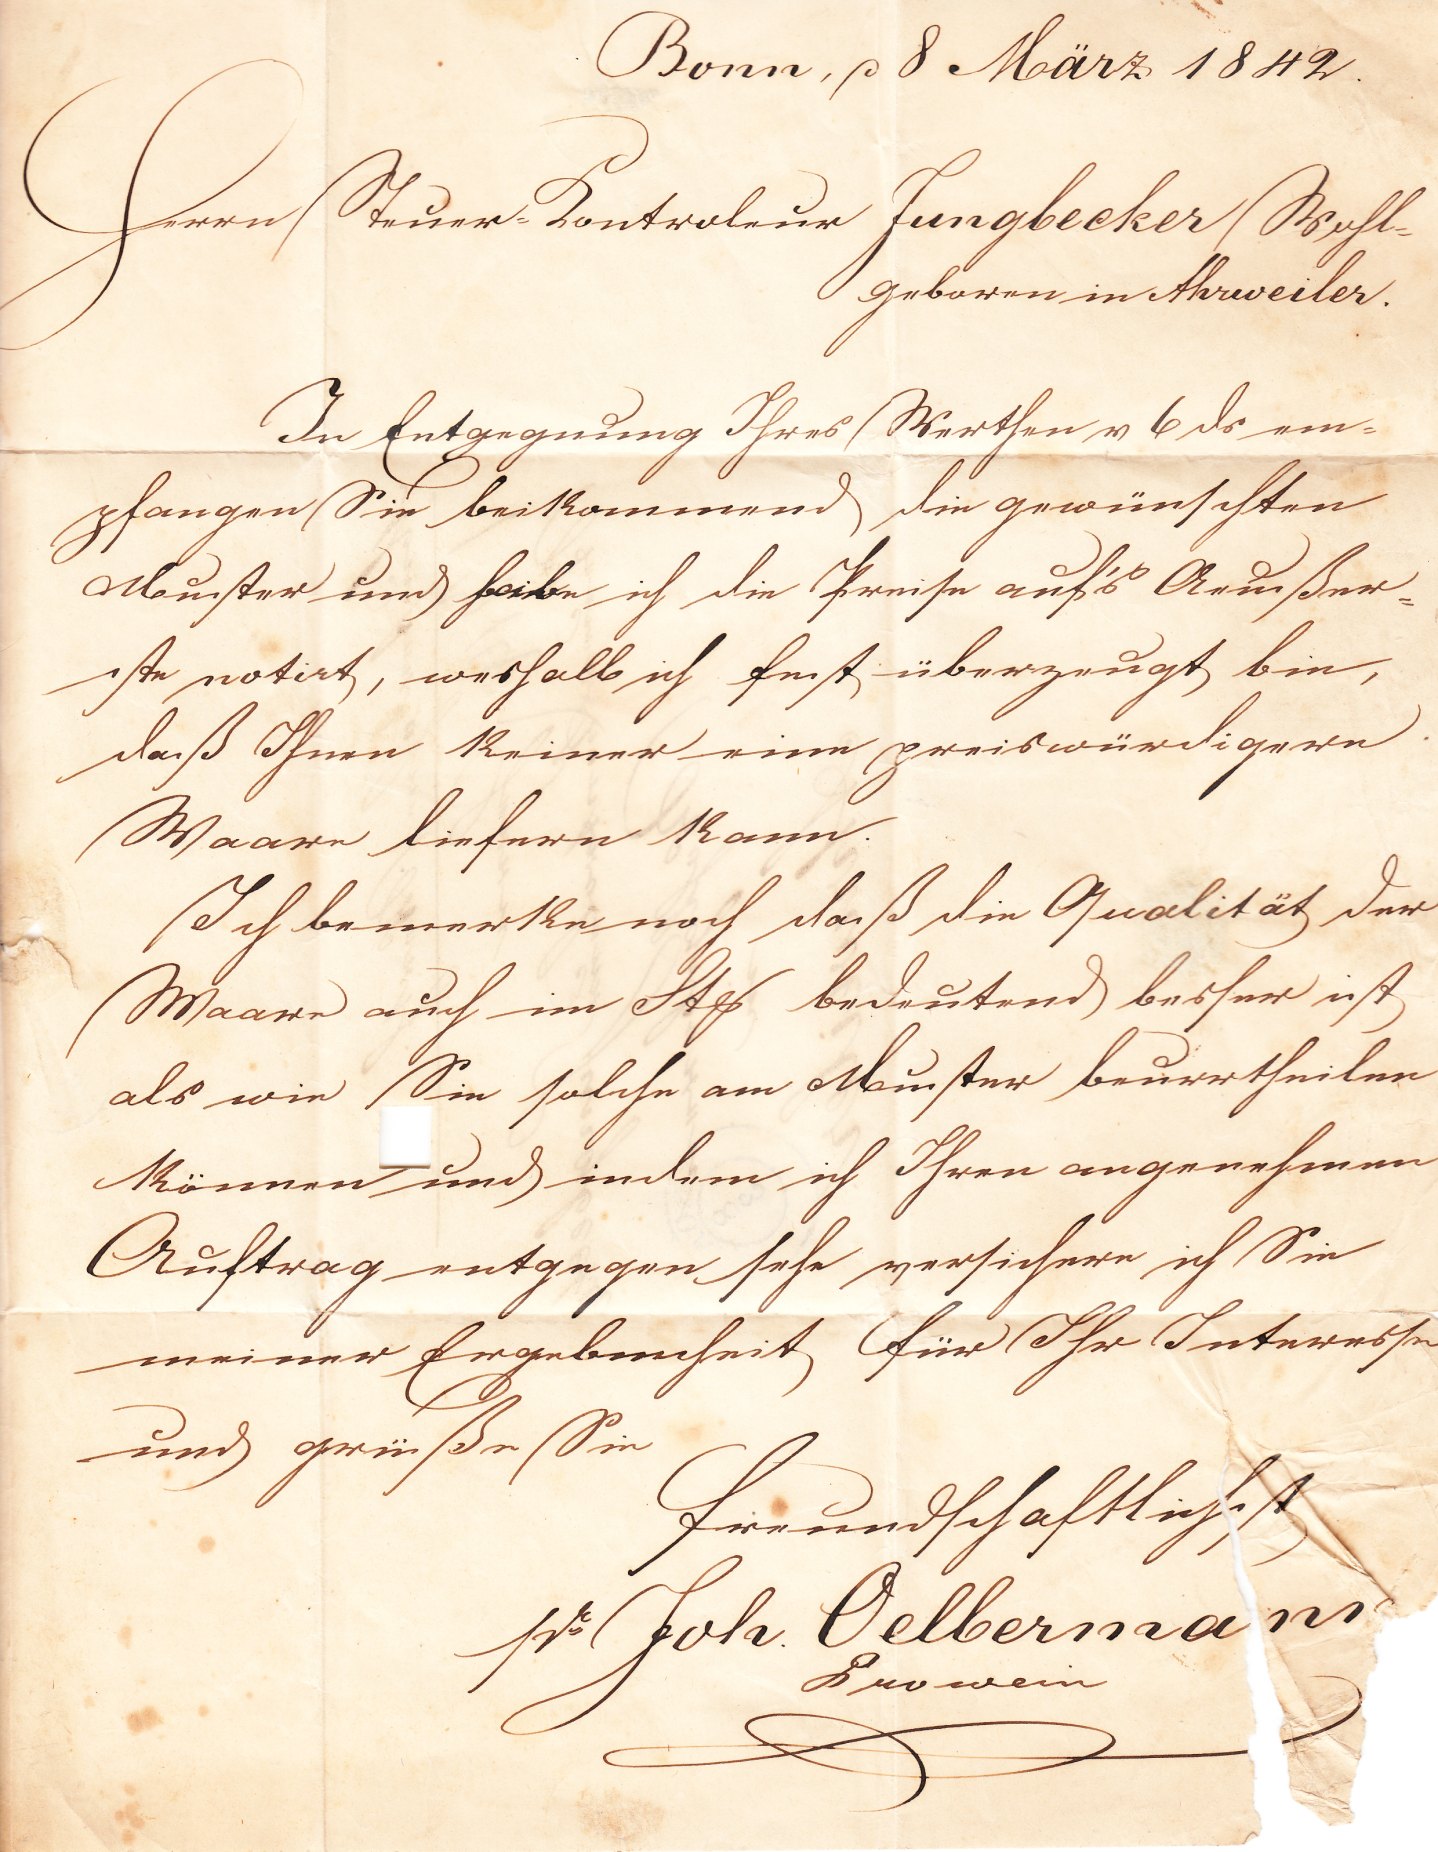 Bonn, d 8 März 1842.
Herrn Steuer-Kontroleur Jungbecker Wohl-
geboren in Ahrweiler.
In Entgegnung Ihres Werthen v 6 ds em-
pfangen Sie beikommend die gewünschten
Muster und habe ich die Preise auf's Aeußer-
ste notirt, weshalb ich fest überzeugt bin,
daß Ihnen keiner eine preiswürdigere
Waare liefern kann.
Ich bemerke noch daß die Qualität der
Waare auch im Stk bedeutend besser ist
als wie Sie solche am Muster beurtheilen
können und indem ich Ihren angenehmen
Auftrag entgegen sehe versichere ich Sie
meiner Ergebenheit für Ihr Interesse
und grüße Sie
freundschaftlichst
pr Joh. Oelbermann